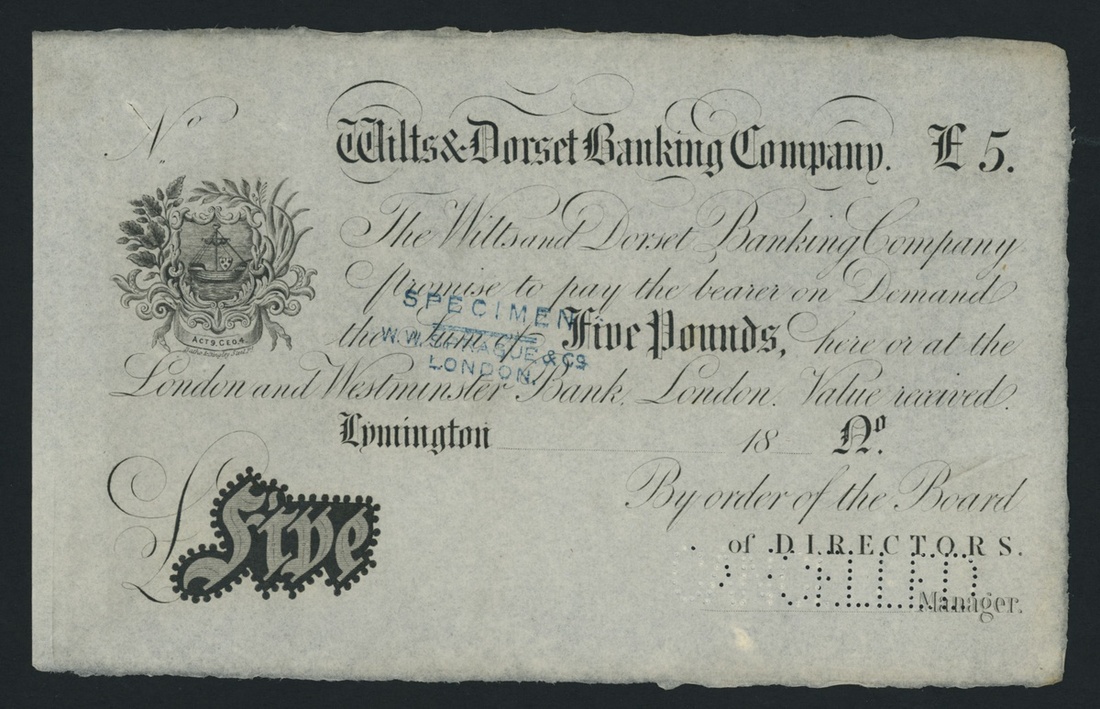 No
Wilts & Dorset Banking Company. £5.
The Wilts and Dorset Banking Company
promise to pay the bearer on Demand
the sum of Five Pounds, here or at the
London and Westminster Bank, London. Value received.
SPECIMEN
W.W. SPRAGUE & Co
LONDON.
ACT 9, GEO, 4.
Lymington 18 No.
By order of the Board
of DIRECTORS.
CANCELLED
Manager.
£Five